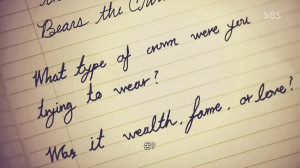 Bears the
SBS
What type of crown were you
trying to wear?
Was it wealth, fame, or love?